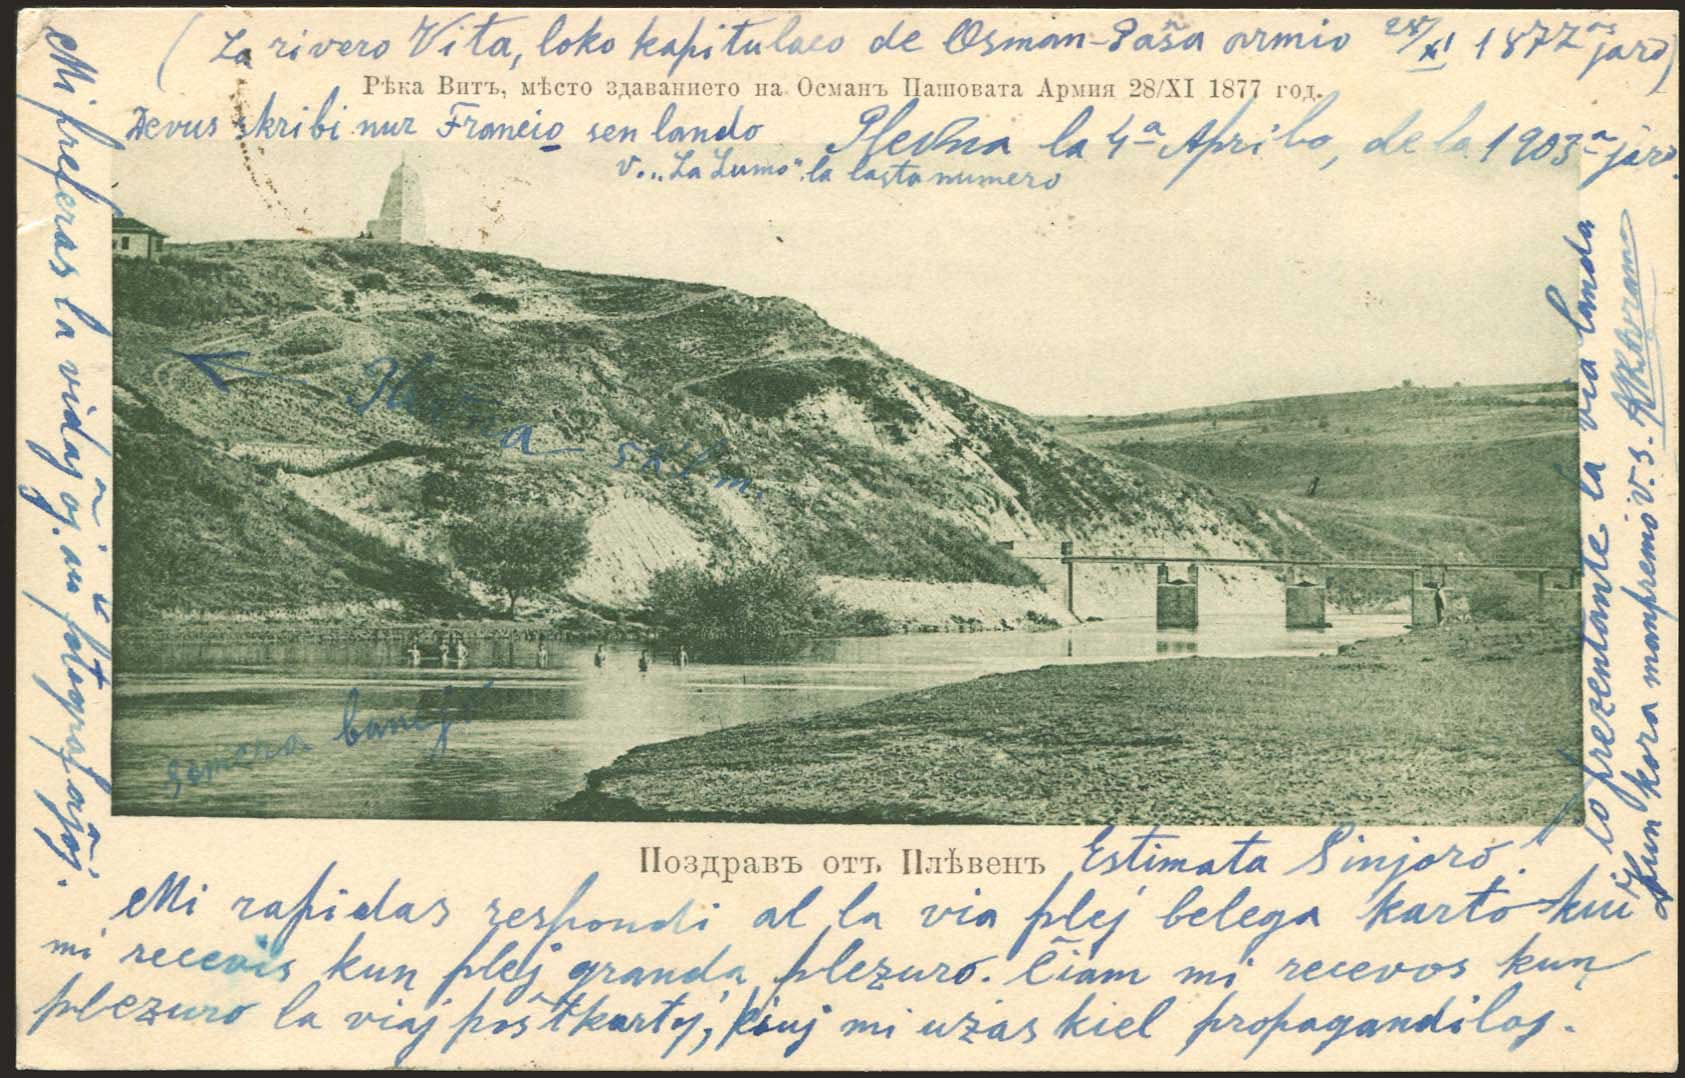 (La rivero Vita, loko kapitulaco de Osman-Paŝa armio 28/XI 1877ª jaro)
Рѣка Витъ, мѣсто здаванието на Османъ Пашовата Армия 28/XI 1877 год.
Devus skribi nur Francio sen lando
Plevna la 4ª Aprilo, de la 1903ª jaro
V. „La Lumo“ la lasta numero
Plevna 5 klm.
somera banejo
Поздравъ отъ Плѣвенъ
Estimata Sinjoro!
Mi rapidas respondi al la via plej belega karto kiu
mi recevis kun plej granda plezuro. Ĉiam mi recevos kun
plezuro la viaj poŝtkartoj, kiuj mi uzas kiel propagandiloj.
Mi preferas la vidaĵoj aŭ fotografaĵoj.
prezentante la via landa
Kun kora manpremo V. S.